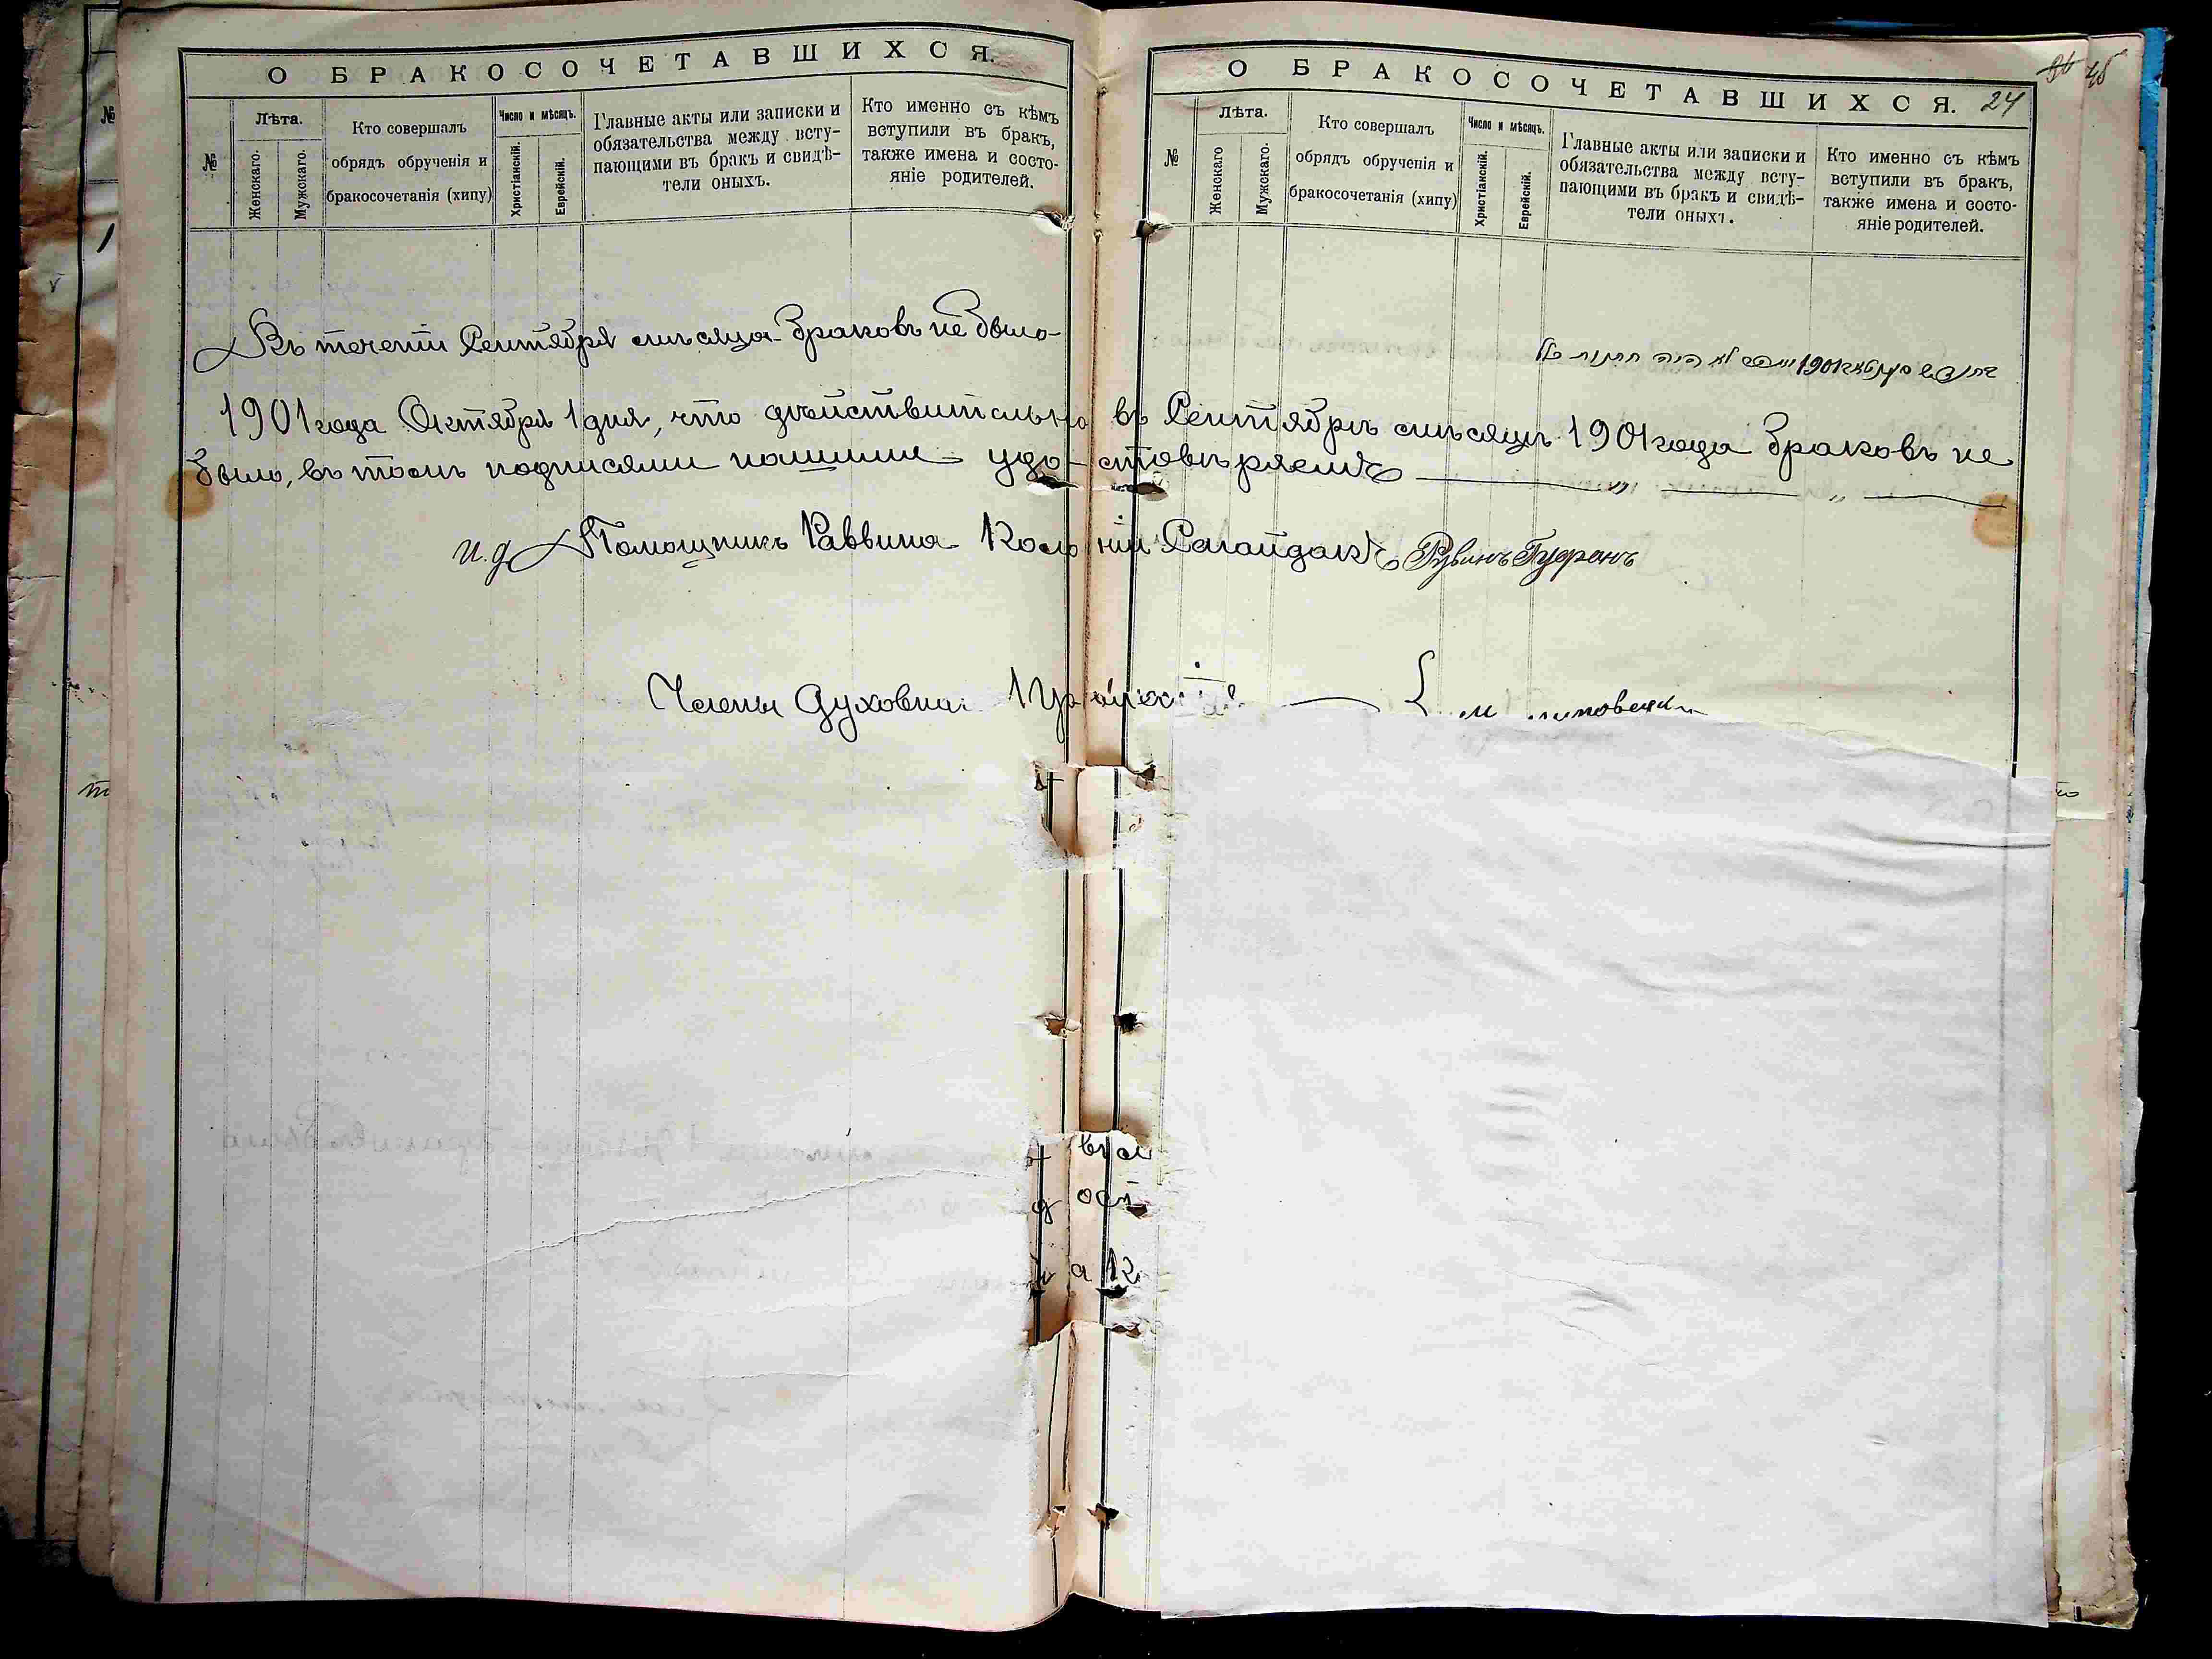 О БРАКОСОЧЕТАВШИХСЯ.
№
Лѣта.
Женскаго.
Мужскаго.
Кто совершалъ
обрядъ обрученія и
бракосочетанія (хипу)
Число и мѣсяцъ.
Христіанскій.
Еврейскій.
Главные акты или записки и
обязательства между всту-
пающими въ бракъ и свидѣ-
тели оныхъ.
Кто именно съ кѣмъ
вступили въ бракъ,
также имена и состо-
яніе родителей.
О БРАКОСОЧЕТАВШИХСЯ.
24
№
Лѣта.
Женскаго
Мужскаго.
Кто совершалъ
обрядъ обрученія и
бракосочетанія (хипу)
Число и мѣсяцъ.
Христіанскій.
Еврейскій.
Главные акты или записки и
обязательства между всту-
пающими въ бракъ и свидѣ-
тели оныхъ.
Кто именно съ кѣмъ
вступили въ бракъ,
также имена и состо-
яніе родителей.
Въ теченіи Сентября мѣсяца браковъ не было
1901 לא היה חתונות כלל
1901 года Октября 1 дня, что дѣйствительно въ Сентябрѣ мѣсяцѣ 1901 года браковъ не
было, въ томъ подписями нашими удостовѣряемъ
и. д. Помощникъ Раввина Колоніи Сагайдакъ Рувинъ Гуфранъ
Члены Духовна